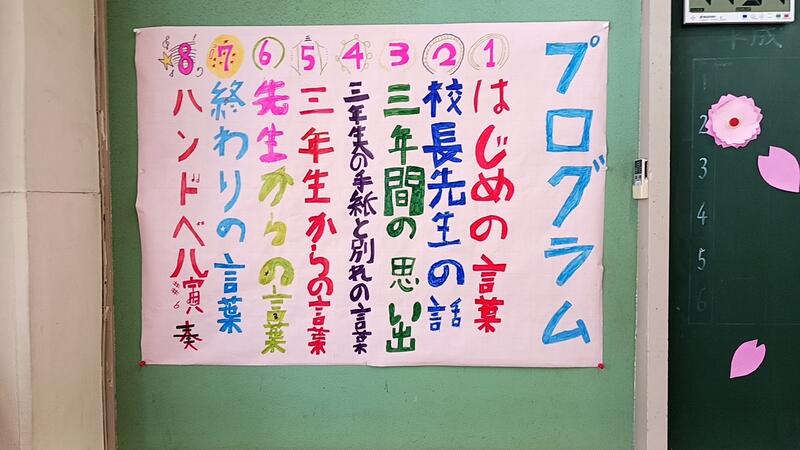 プログラム
1 はじめの言葉
2 校長先生の話
3 三年間の思い出
4 三年生への手紙と別れの言葉
5 三年生からの言葉
6 先生からの言葉
7 終わりの言葉
8 ハンドベル演奏
1
2
3
4
5
6